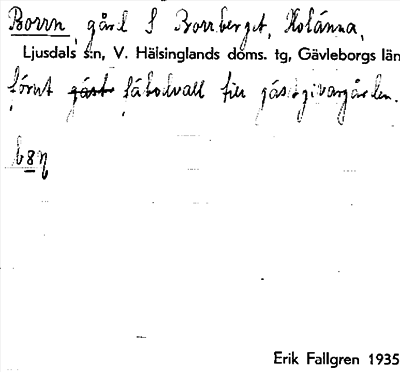 Borrn, gård S Borrberget, Kolänna,
Ljusdals s:n, V. Hälsinglands doms. tg, Gävleborgs län
förut gäst fäbodvall till gästgivargården.
Erik Fallgren 1935